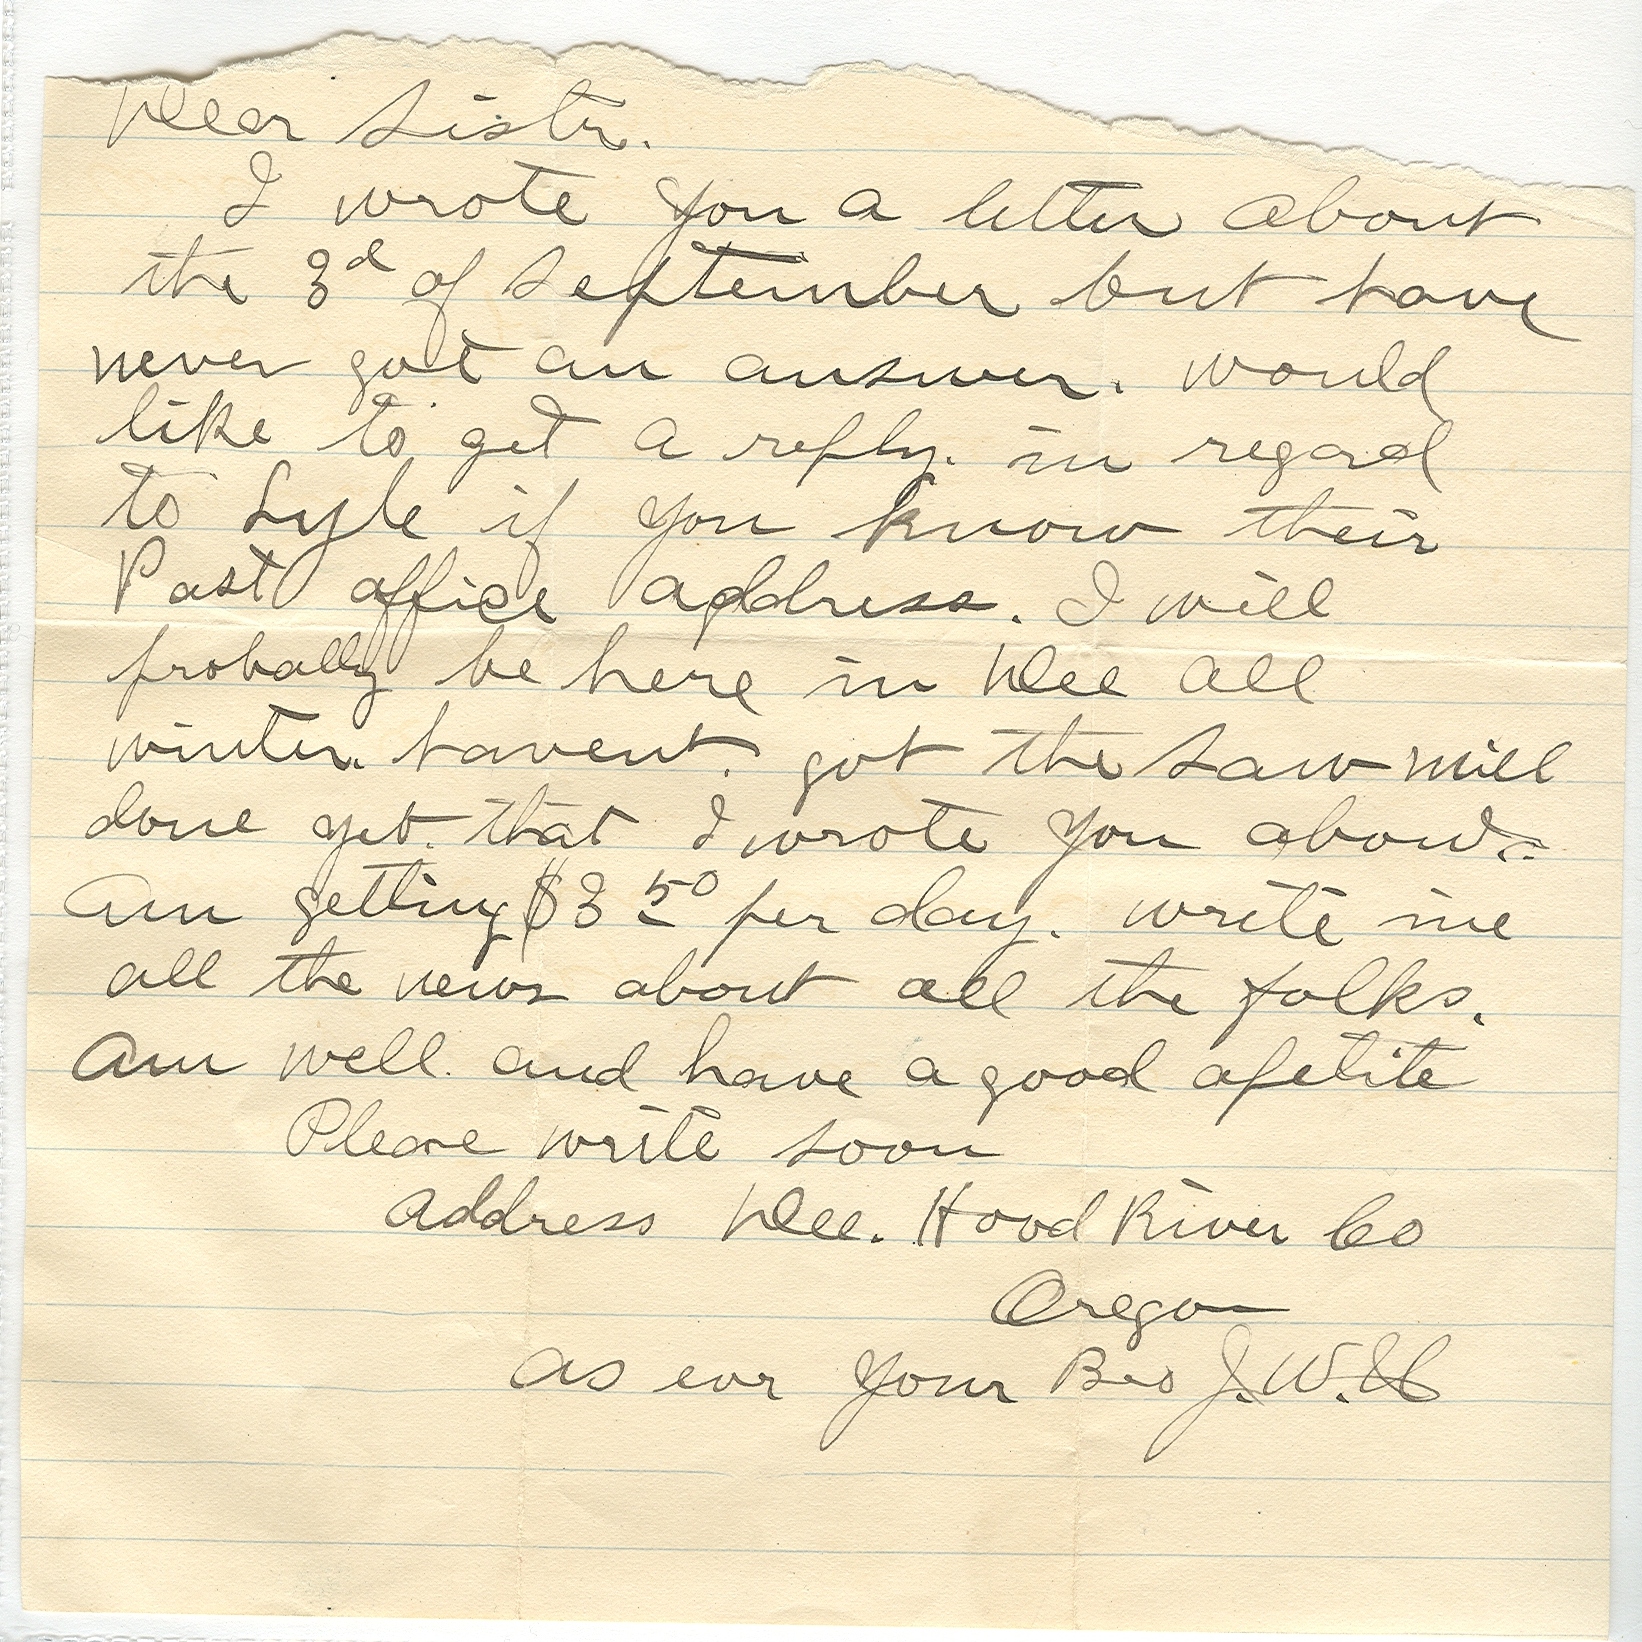 Dear Sistr.
I wrote you a letter about
the 3d of September but have
never got an answer. would
like to get a reply. in regard
to Lyle if you know their
Post office address. I will
probally be here in Dee all
winter. havent. got the saw mill
done yet. that I wrote you about.
am getting $3 50 per day. write me
all the news about all the folks.
am well. and have a good apetite
Please write soon
address Dee. Hood River Co
Oregon
as evr your Bro J. W. H